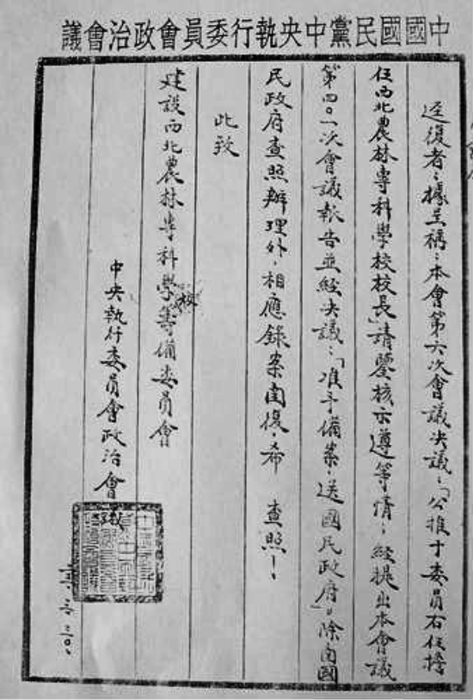 中國國民黨中央執行委員會政治會議
逕復者：據呈稱：本會第六次會議決議：「公推于委員右任擔
任西北農林專科學校校長」請鑒核示遵等情；經提出本會議
第四〇一次會議報告並經決議：「准予備案，送國民政府」。除函國
民政府查照辦理外，相應錄案函復，希　查照！
此致
建設西北農林專科學校籌備委員會
中央執行委員會政治會議